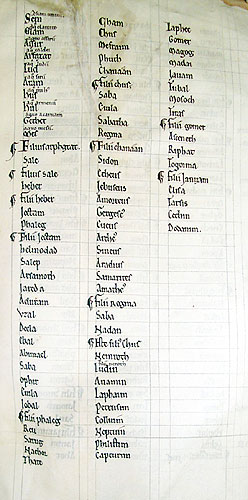 Sem
Elam
Assur
Arfaxat
Lud
Aram
Vs
Hul
Gether
Mes
Filius arphaxat.
Sale
filius sale
heber
filii heber
Jectam
phaleg
filii Jectam
helmodad
Salep
Asarmoth
Jared
Aduram
Vzal
Decla
Ebal
Abimael
Saba
ophir
Euila
Jobal
filii phaleg
Reu
Sarug
Nachor
Thare
Cham
Chus
Mesraim
Phuth
Chanaan
filii chus
Saba
Euila
Sabatha
Regma
filii chanaan
Sidon
Etheus
Jebuseus
Amorreus
Gergese
Eueus
Sineus
Aradius
Samarites
Amathe
filii Regma
Saba
Dadan
filii chus
Nemroth
Ludin
Anamin
Laphaim
Petrusim
Cosluim
Neptuim
Philistim
Capturim
Japhet
Gomer
Magog
Madai
Jauam
Tubal
Mosoch
Tiras
filii gomer
Asceneth
Riphat
Togorma
filii Jauam
Elisa
Tarsis
Cethim
Dodanim.